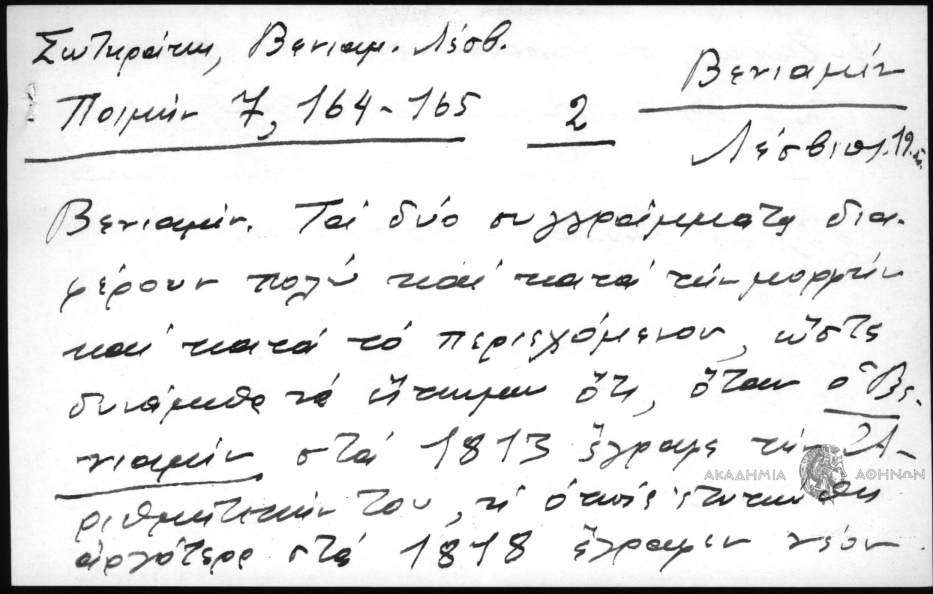 Σωτηράκη, Βενιαμ. Λέσβ.
Ποιμήν 7, 164-165
2
Βενιαμίν
Λέσβιος 19
Βενιαμίν. Τά δύο συγγράμματα δια-
φέρουν πολύ καί κατά τήν μορφήν
καί κατά τό περιεχόμενον, ὥστε
δυνάμεθα νά εἴπωμεν ὅτι, ὅταν ὁ Βε-
νιαμίν στά 1813 ἔγραψε τήν Ἀ-
ριθμητικήν του, ἡ ὁποία ἐτυπώθη
ἀργότερα στά 1818 ἔγραψεν νέον
ΑΚΑΔΗΜΙΑ ΑΘΗΝΩΝ